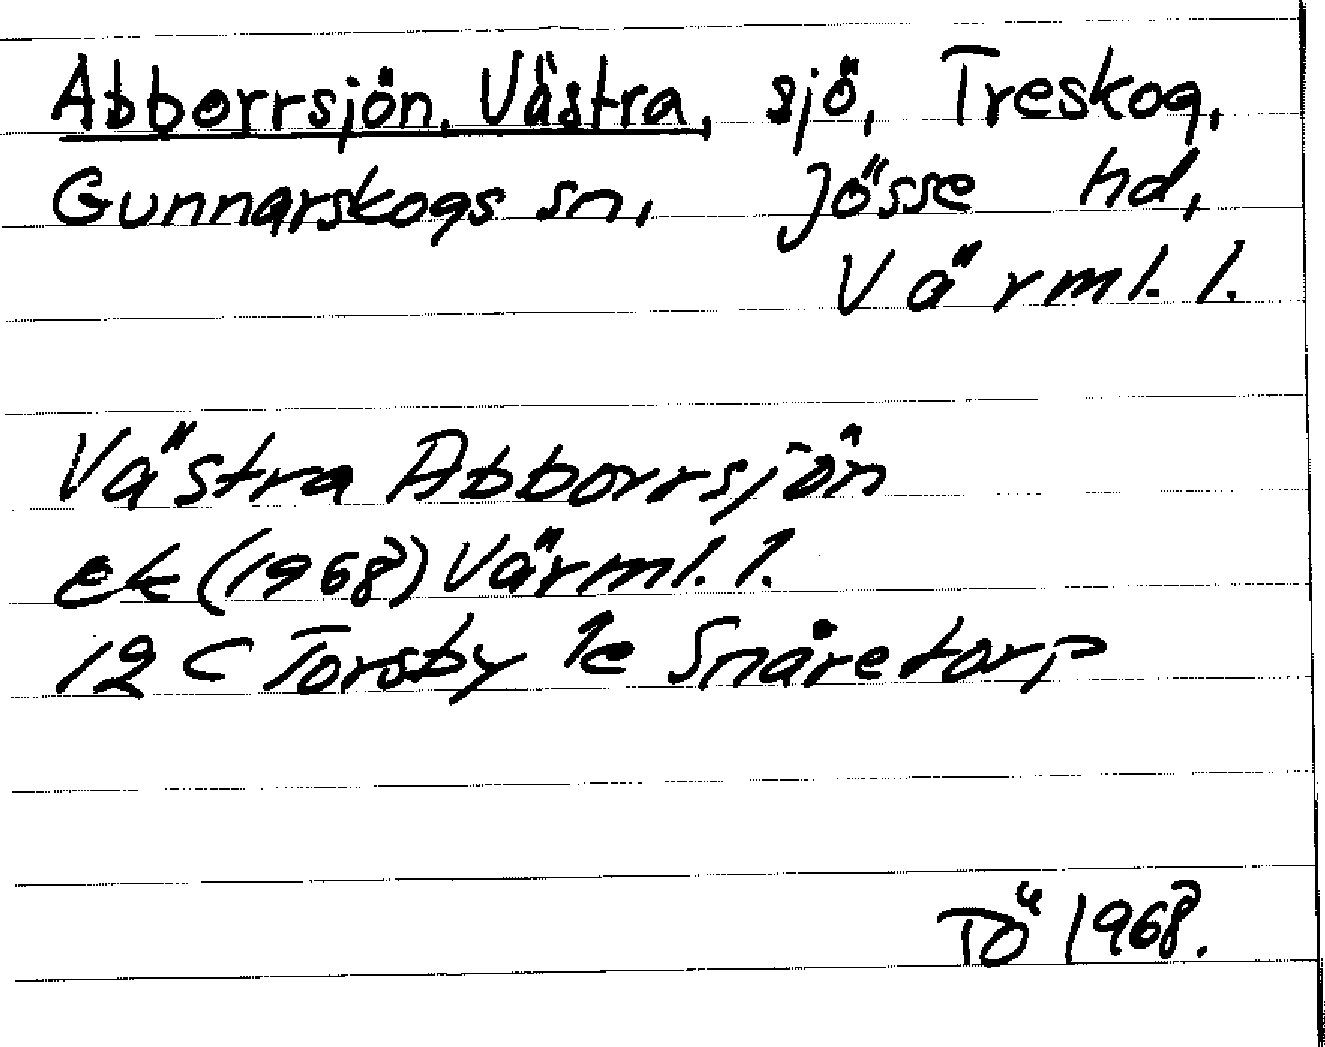 Abborrsjön, Västra, sjö, Treskog,
Gunnarskogs sn, Jösse hd,
Värml. l.
Västra Abborrsjön
ek (1968) Värml. l.
12 C Torsby 1c Snåretorp
TÖ 1968.